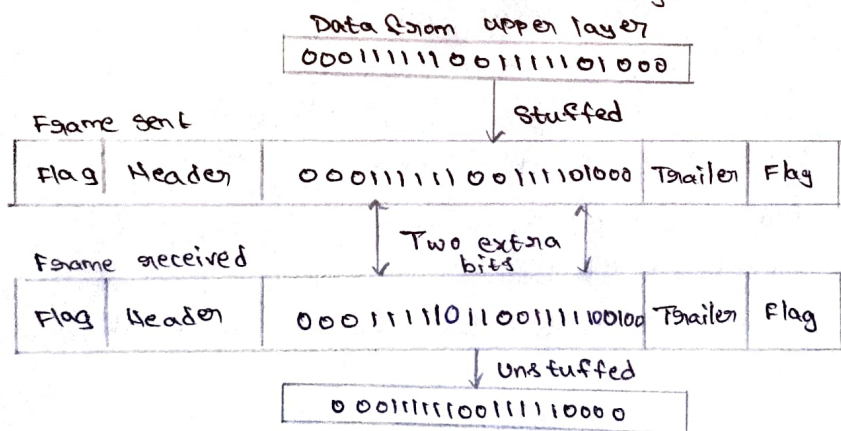 Data from upper layer
0001111111001111101000
Frame sent
Flag Header 000111111100111101000 Trailer Flag
Stuffed
Two extra bits
Frame received
Flag Header 000111111011001111100100 Trailer Flag
Unstuffed
000111111100111110000